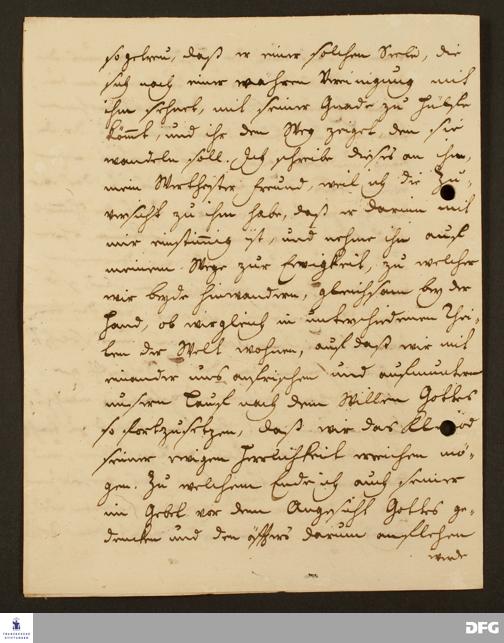 so getreu, daß er einer solchen Seele, die
sich nach einer wahren Vereinigung mit
ihm sehnet, mit seiner Gnade zu Hülfe
kömmt, und ihr den Weg zeiget, den sie
wandeln soll. Ich schreibe dieses an ihn,
mein Werthester Freund, weil ich die Zu-
versicht zu ihm habe, daß er darinn mit
mir einstimmig ist, und nehme ihn auf
meinem Wege zur Ewigkeit, zu welcher
wir beyde hinwandern, gleichsam bey der
Hand, ob wir gleich in unterschiedenen Thei-
len der Welt wohnen, auf daß wir mit
einander uns anfrischen und aufmuntern
unsern Lauf nach dem Willen Gottes
so fortzusetzen, daß wir das Kleinod
seiner ewigen Herrlichkeit erreichen mö-
gen. Zu welchem Ende ich auch seiner
im Gebet vor dem Angesicht Gottes ge-
dencken und den öffters darum anflehen
werde
FRANCKESCHE
STIFTUNGEN
DFG